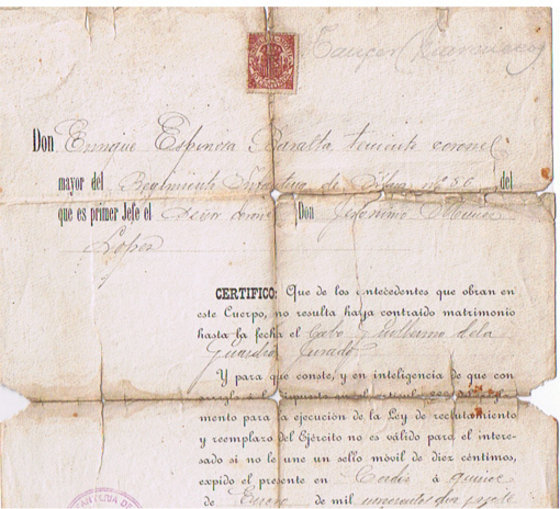 Don Enrique Espinosa Peralta, teniente coronel
mayor del Regimiento Infantería de nº del
que es primer Jefe el Señor Coronel Don Jerónimo Muñoz
Lopez
CERTIFICO: Que de los antecedentes que obran en
este Cuerpo, no resulta haya contraído matrimonio
hasta la fecha el Cabo Guillermo de la
Guardia Jurado
Y para que conste, y en inteligencia de que con
arreglo
mento para la ejecución de la Ley de reclutamiento
y reemplazo del Ejército no es válido para el intere-
sado si no le une un sello móvil de diez céntimos,
expido el presente en Cadiz á quince
de Enero de mil novecientos diez y siete